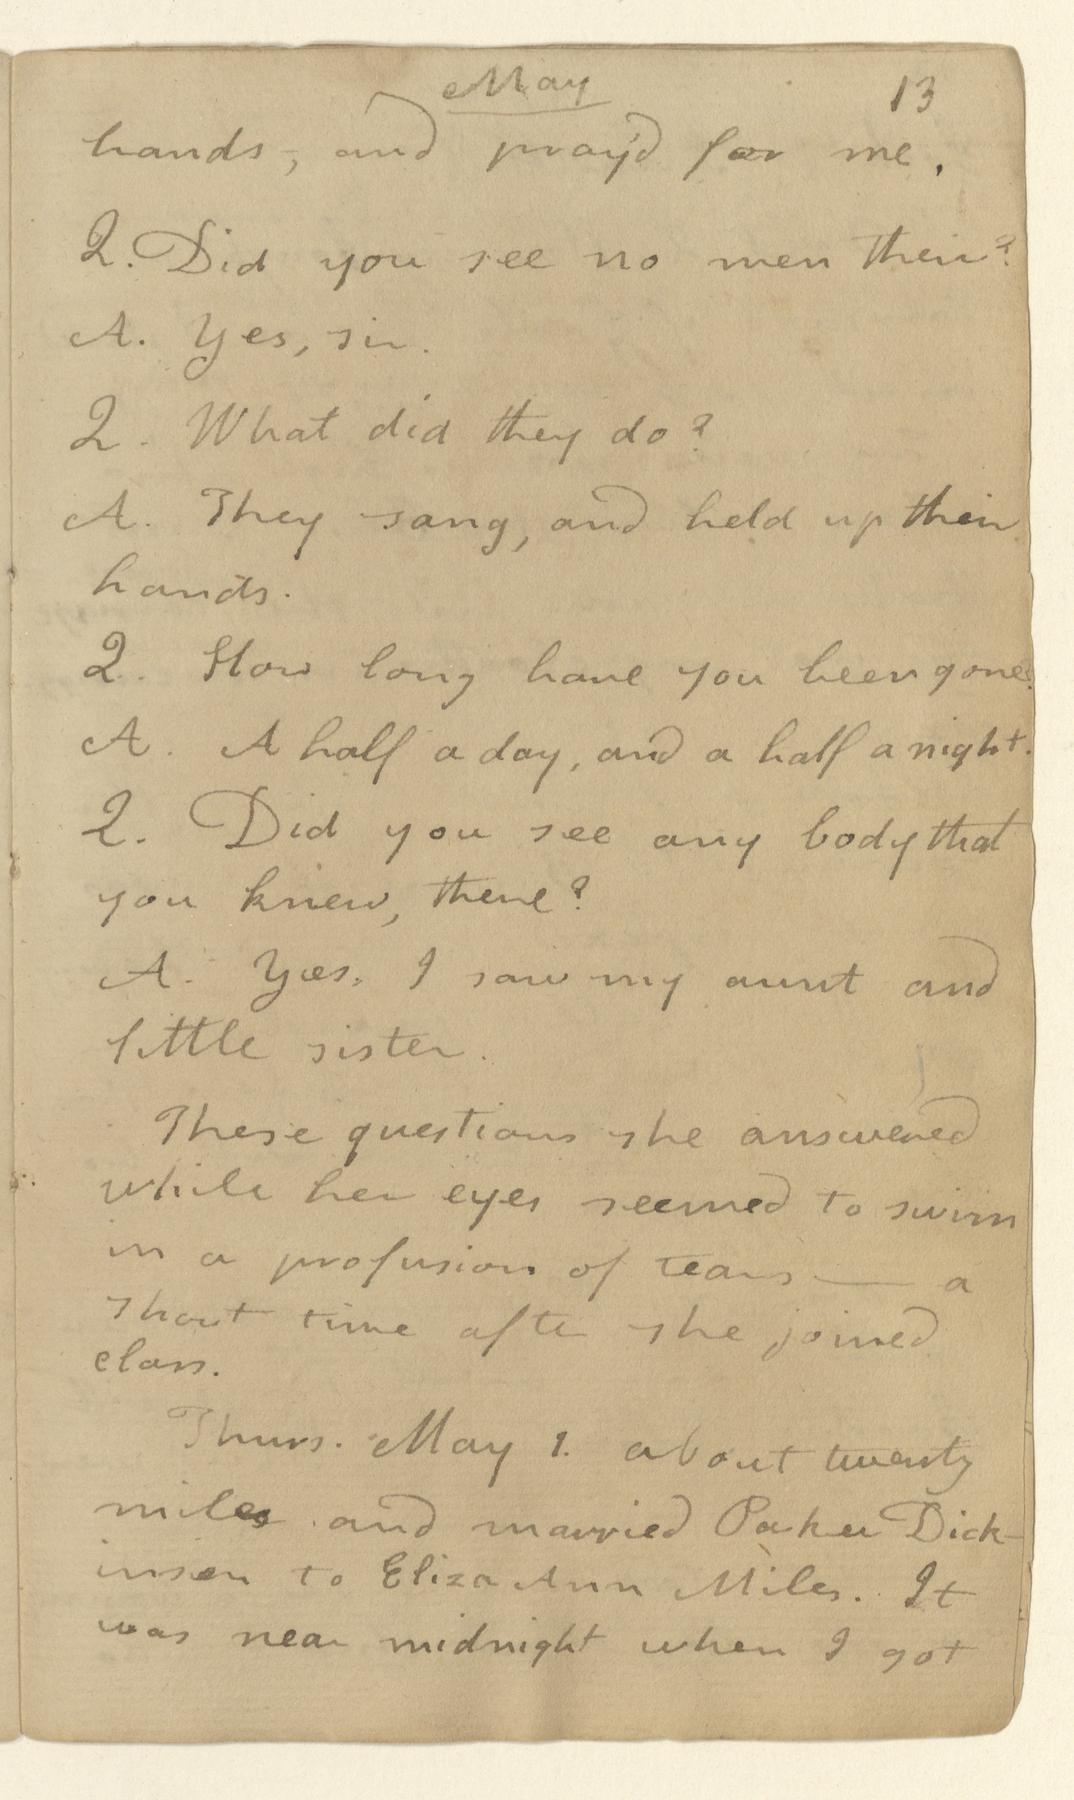 May 13
hands, and pray'd for me.
Q. Did you see no men their?
A. Yes, sir.
Q. What did they do?
A. They sang, and held up their
hands.
Q. How long have you been gone?
A. A half a day, and a half a night.
Q. Did you see any body that
you knew, there?
A. Yes. I saw my aunt and
little sister.
These questions she answered
while her eyes seemed to swim
in a profusion of tears — a
short time after she joined
class.
Thurs. May 1. about twenty
miles and married Parker Dick-
inson to Eliza Ann Miles. It
was near midnight when I got